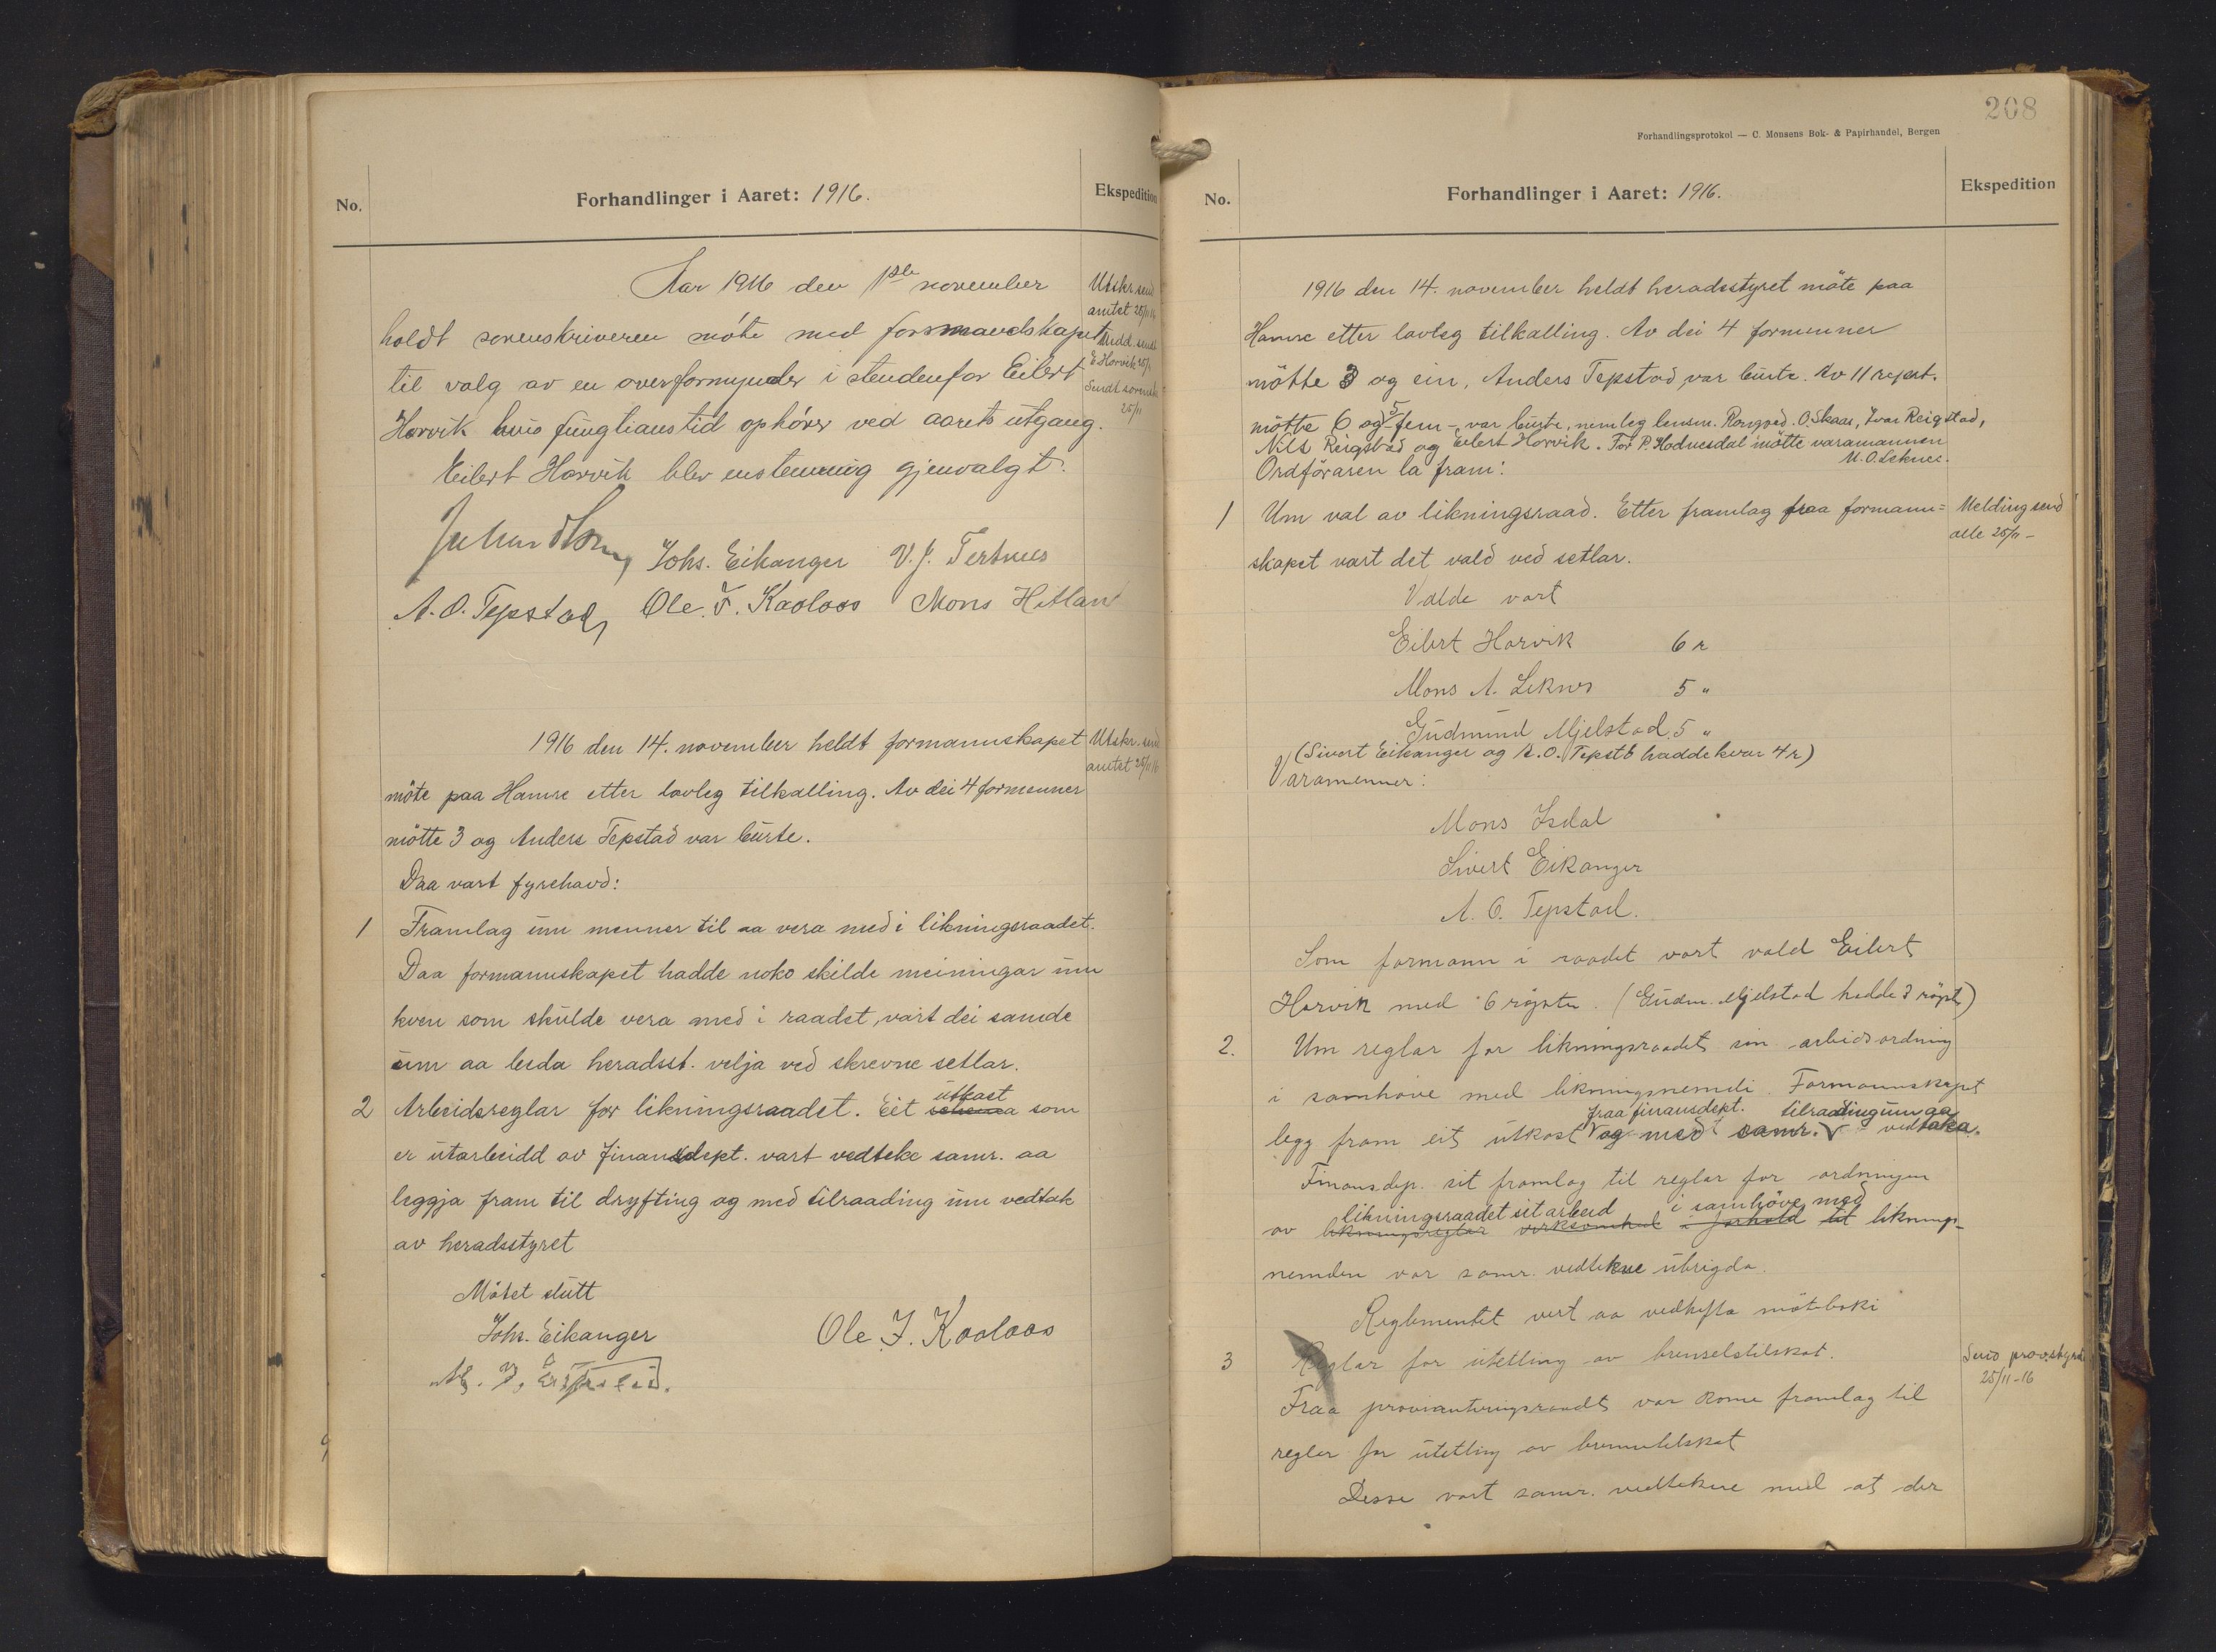 No.
Forhandlinger i Aaret: 1916.
Ekspedition
Aar 1916 den 1ste november
holdt sorenskriveren møte med formandskapet
til valg av en overformynder i stedenfor Eilert
Horvik hvis fungtianstid ophører ved aarets utgang.
Eilert Horvik blev enstemmig gjenvalgt.
Utskr. send
amtet 25/11 16
Medd. sendt
E Horvik 25/11
Sendt sorenskr.
25/11
Johs. Eikanger V. J. Tertnes
A. O. Tepstad, Ole J. Kaalaas Mons Hitland
1916 den 14. november heldt formannskapet
møte paa Hamre etter lovleg tilkalling. Av dei 4 formenner
møtte 3 og Anders Tepstad var burte.
Daa vart fyrehavd:
Utskr. send
amtet 25/11 16
1 Framlag um menner til aa vera med i likningsraadet.
Daa formannskapet hadde noko skilde meiningar um
kven som skulde vera med i raadet, vart dei samde
um aa beda heradsst. velja ved skrevne setlar.
utkast
2 Arbeidsreglar for likningsraadet. Eit schema som
er utarbeidd av finansdept. vart vedteke samr. aa
leggja fram til drøfting og med tilraading um vedtak
av heradsstyret
Møtet slutt
Johs. Eikanger Ole J. Kaalaas
208
Forhandlingsprotokol — C. Monsens Bok- & Papirhandel, Bergen
No.
Forhandlinger i Aaret: 1916.
Ekspedition
1916 den 14. november heldt heradsstyret møte paa
Hamre etter lovleg tilkalling. Av dei 4 formenner
møtte 3 og ein, Anders Tepstad var burte. Av 11 repr.
møtte 6 og 5 - fem - var burte, nemleg lensm. Rongved. O. Skaar, Ivar Reigstad,
Nils Reigstad og Eilert Horvik. For P. Hodnesdal møtte varamannen
M. O. Leknes.
Ordføraren la fram:
1 Um val av likningsraad. Etter framlag fraa formann-
skapet vart det vald ved setlar.
Melding send
alle 25/11 -
Valde vart
Eilert Horvik 6 r
Mons A. Leknes 5 "
Gudmund Mjelstad 5 "
(Sivert Eikanger og A. O. Tepst. hadde kvar 4 r)
Varamenner:
Mons Isdal
Sivert Eikanger
A. O. Tepstad.
Som formann i raadet vart vald Eilert
Horvik med 6 røyster. (Gudm. Mjelstad hadde 3 røyst)
2. Um reglar for likningsraadet sin arbeidsordning
i samhøve med likningsnemdi. Formannskapet
fraa finansdept. tilraading um aa
legg fram eit utkast og med samr. vedtaka.
Finansdep. sit framlag til reglar for ordningen
likningsraadet sit arbeid i samhøve med
av likningsreglar verksomhed i forhold til liknings-
nemden var samr. vedtekne ubrigda.
Reglementet vert aa vedhefta møteboki
3 Reglar for utetling av brenselstilskot.
Fraa provianteringsraadet var kome framlag til
reglar for utetling av brennetilskot
Desse vart samr. vedtekne med at der
Send prov.styret
25/11-16